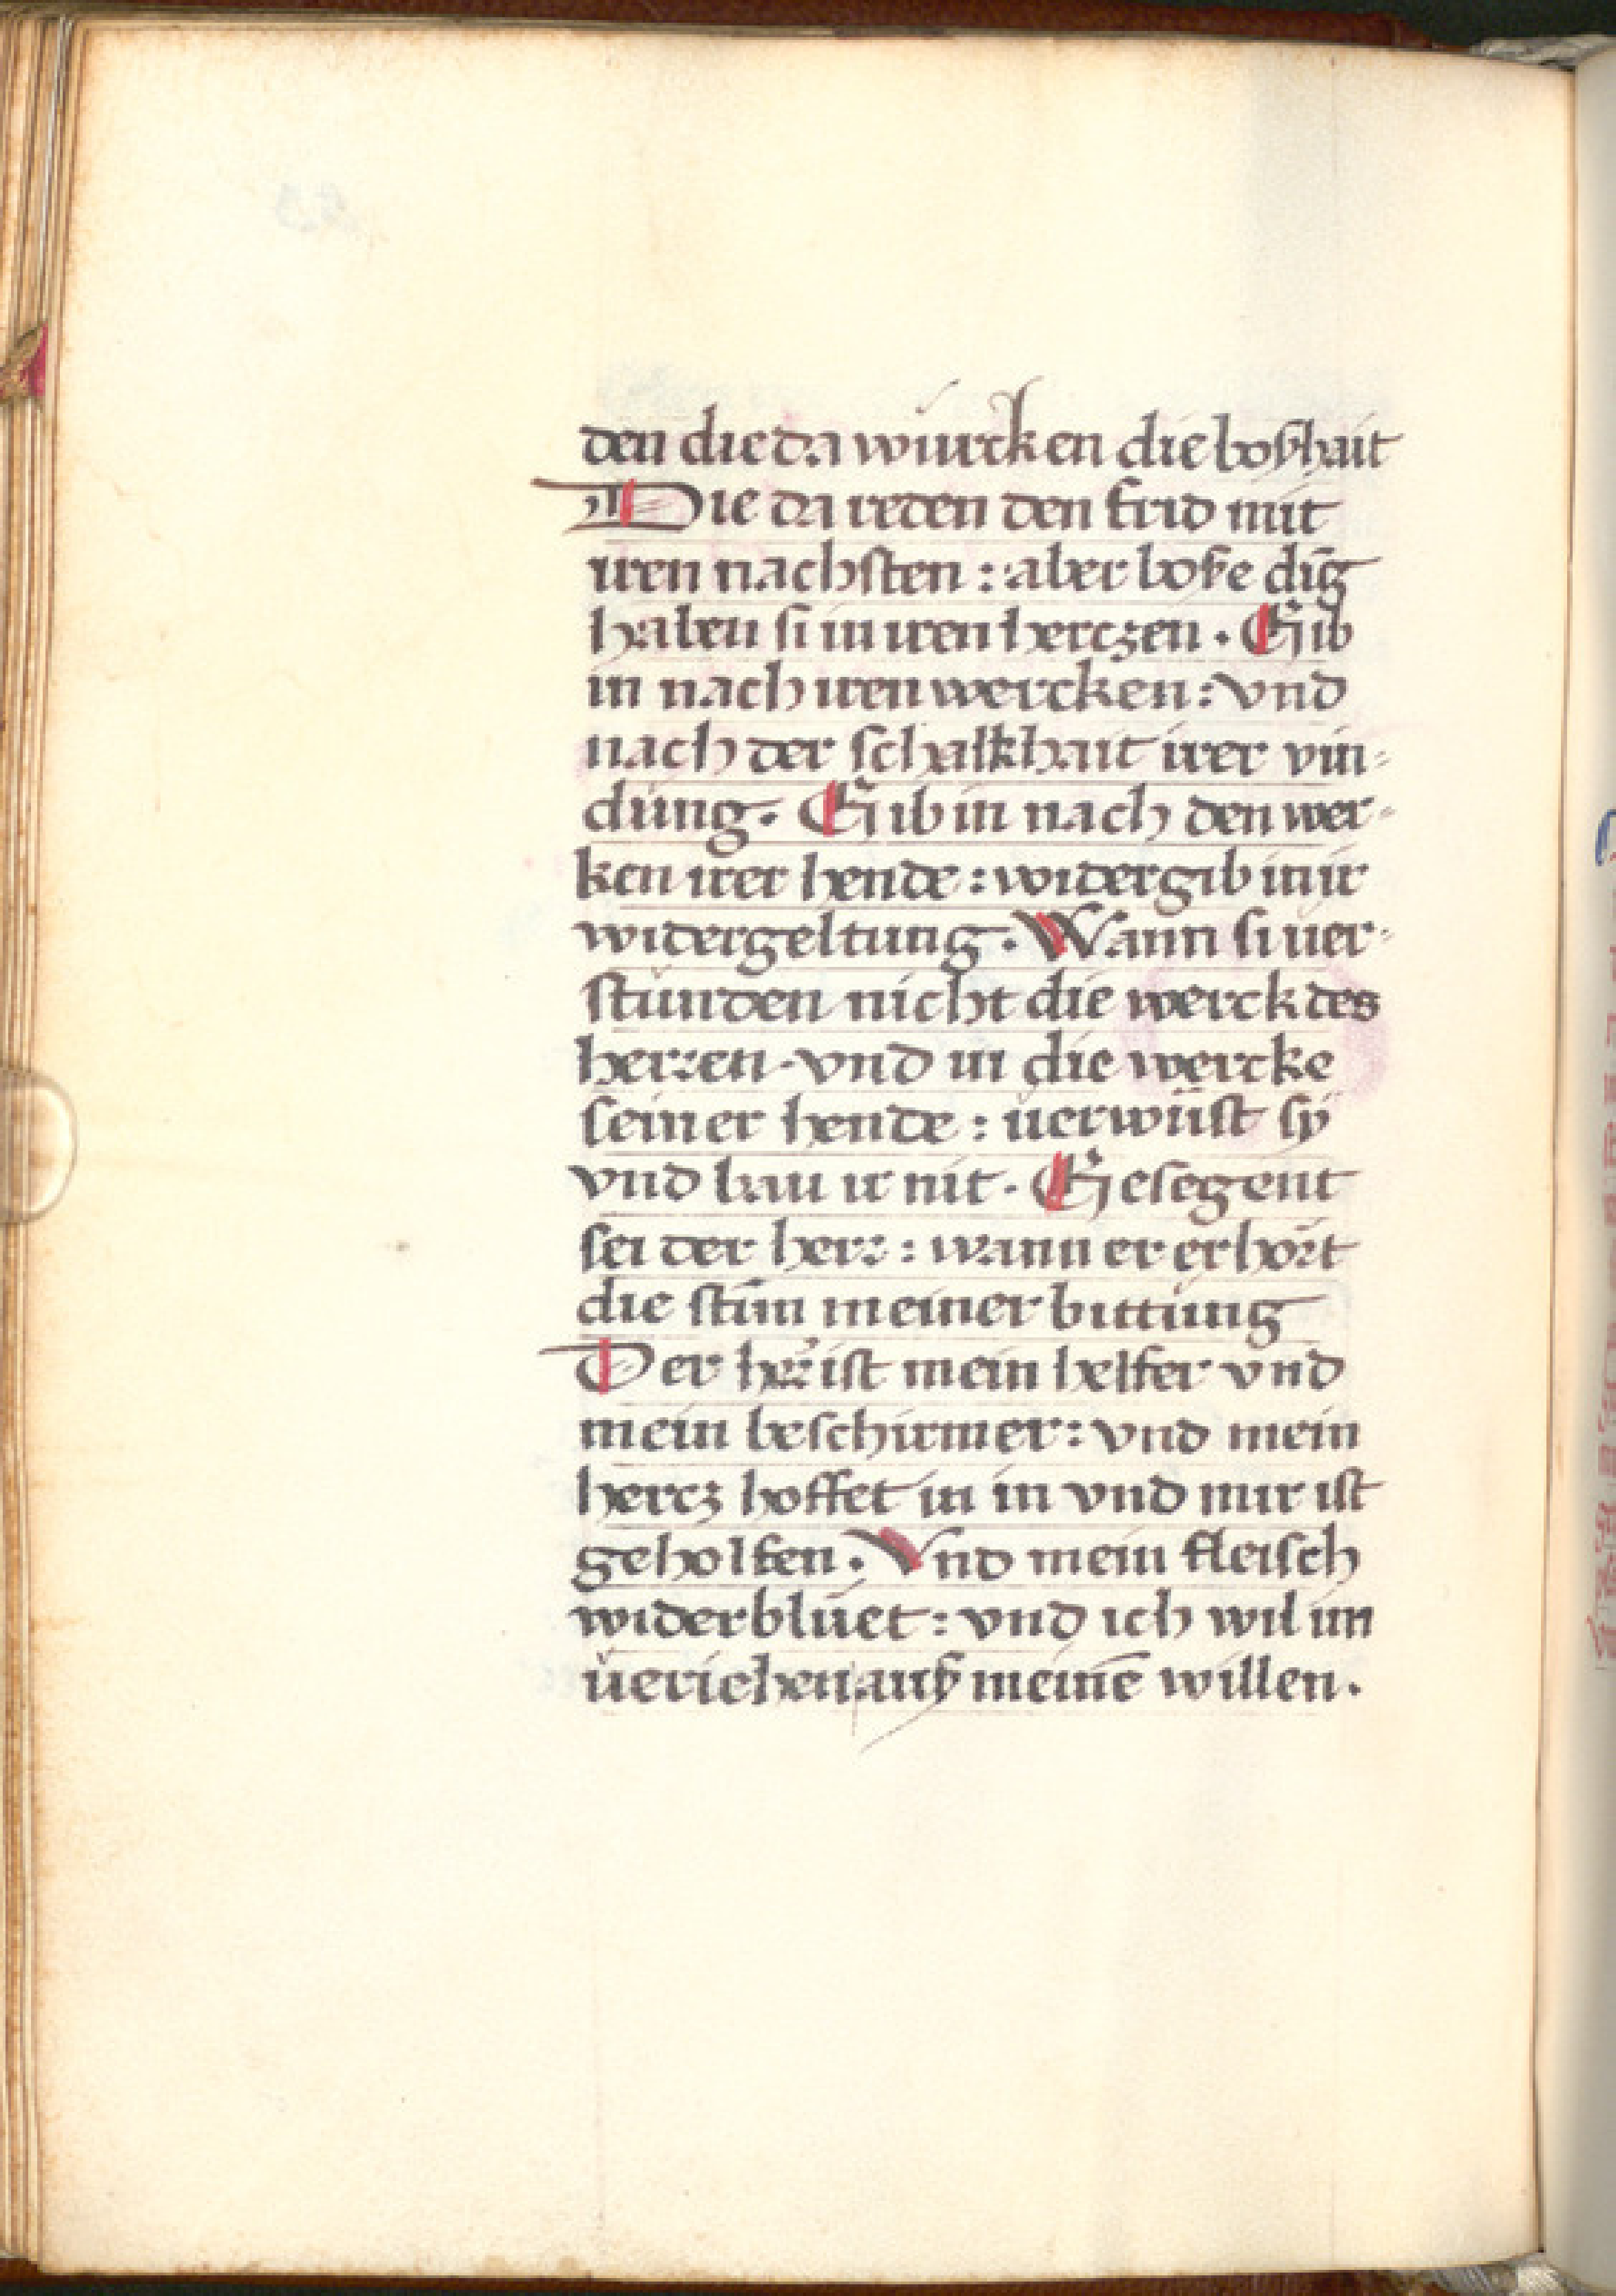 den die da wiurcken die boßhait
Die da reden den frid mit
iren nachsten : aber boße ding
haben si in iren herczen . Gib
in nach iren wercken : vnd
nach der schalkhait irer vin-
dung . Gib in nach den wer-
ken irer hende : widergib in ir
widergeltung . Wann si uer-
stunden nicht die werck des
herren . vnd in die wercke
seiner hende : uerwüst sÿ
vnd bau ir nit . Gesegent
sei der herr : wann er erhört
die stim̄ meiner bittung
Der herr ist mein helfer vnd
mein beschirmer : vnd mein
hercz hoffet in in vnd mir ist
geholfen . Vnd mein fleisch
widerbluet : vnd ich wil im
ueriehen auß meinē willen .